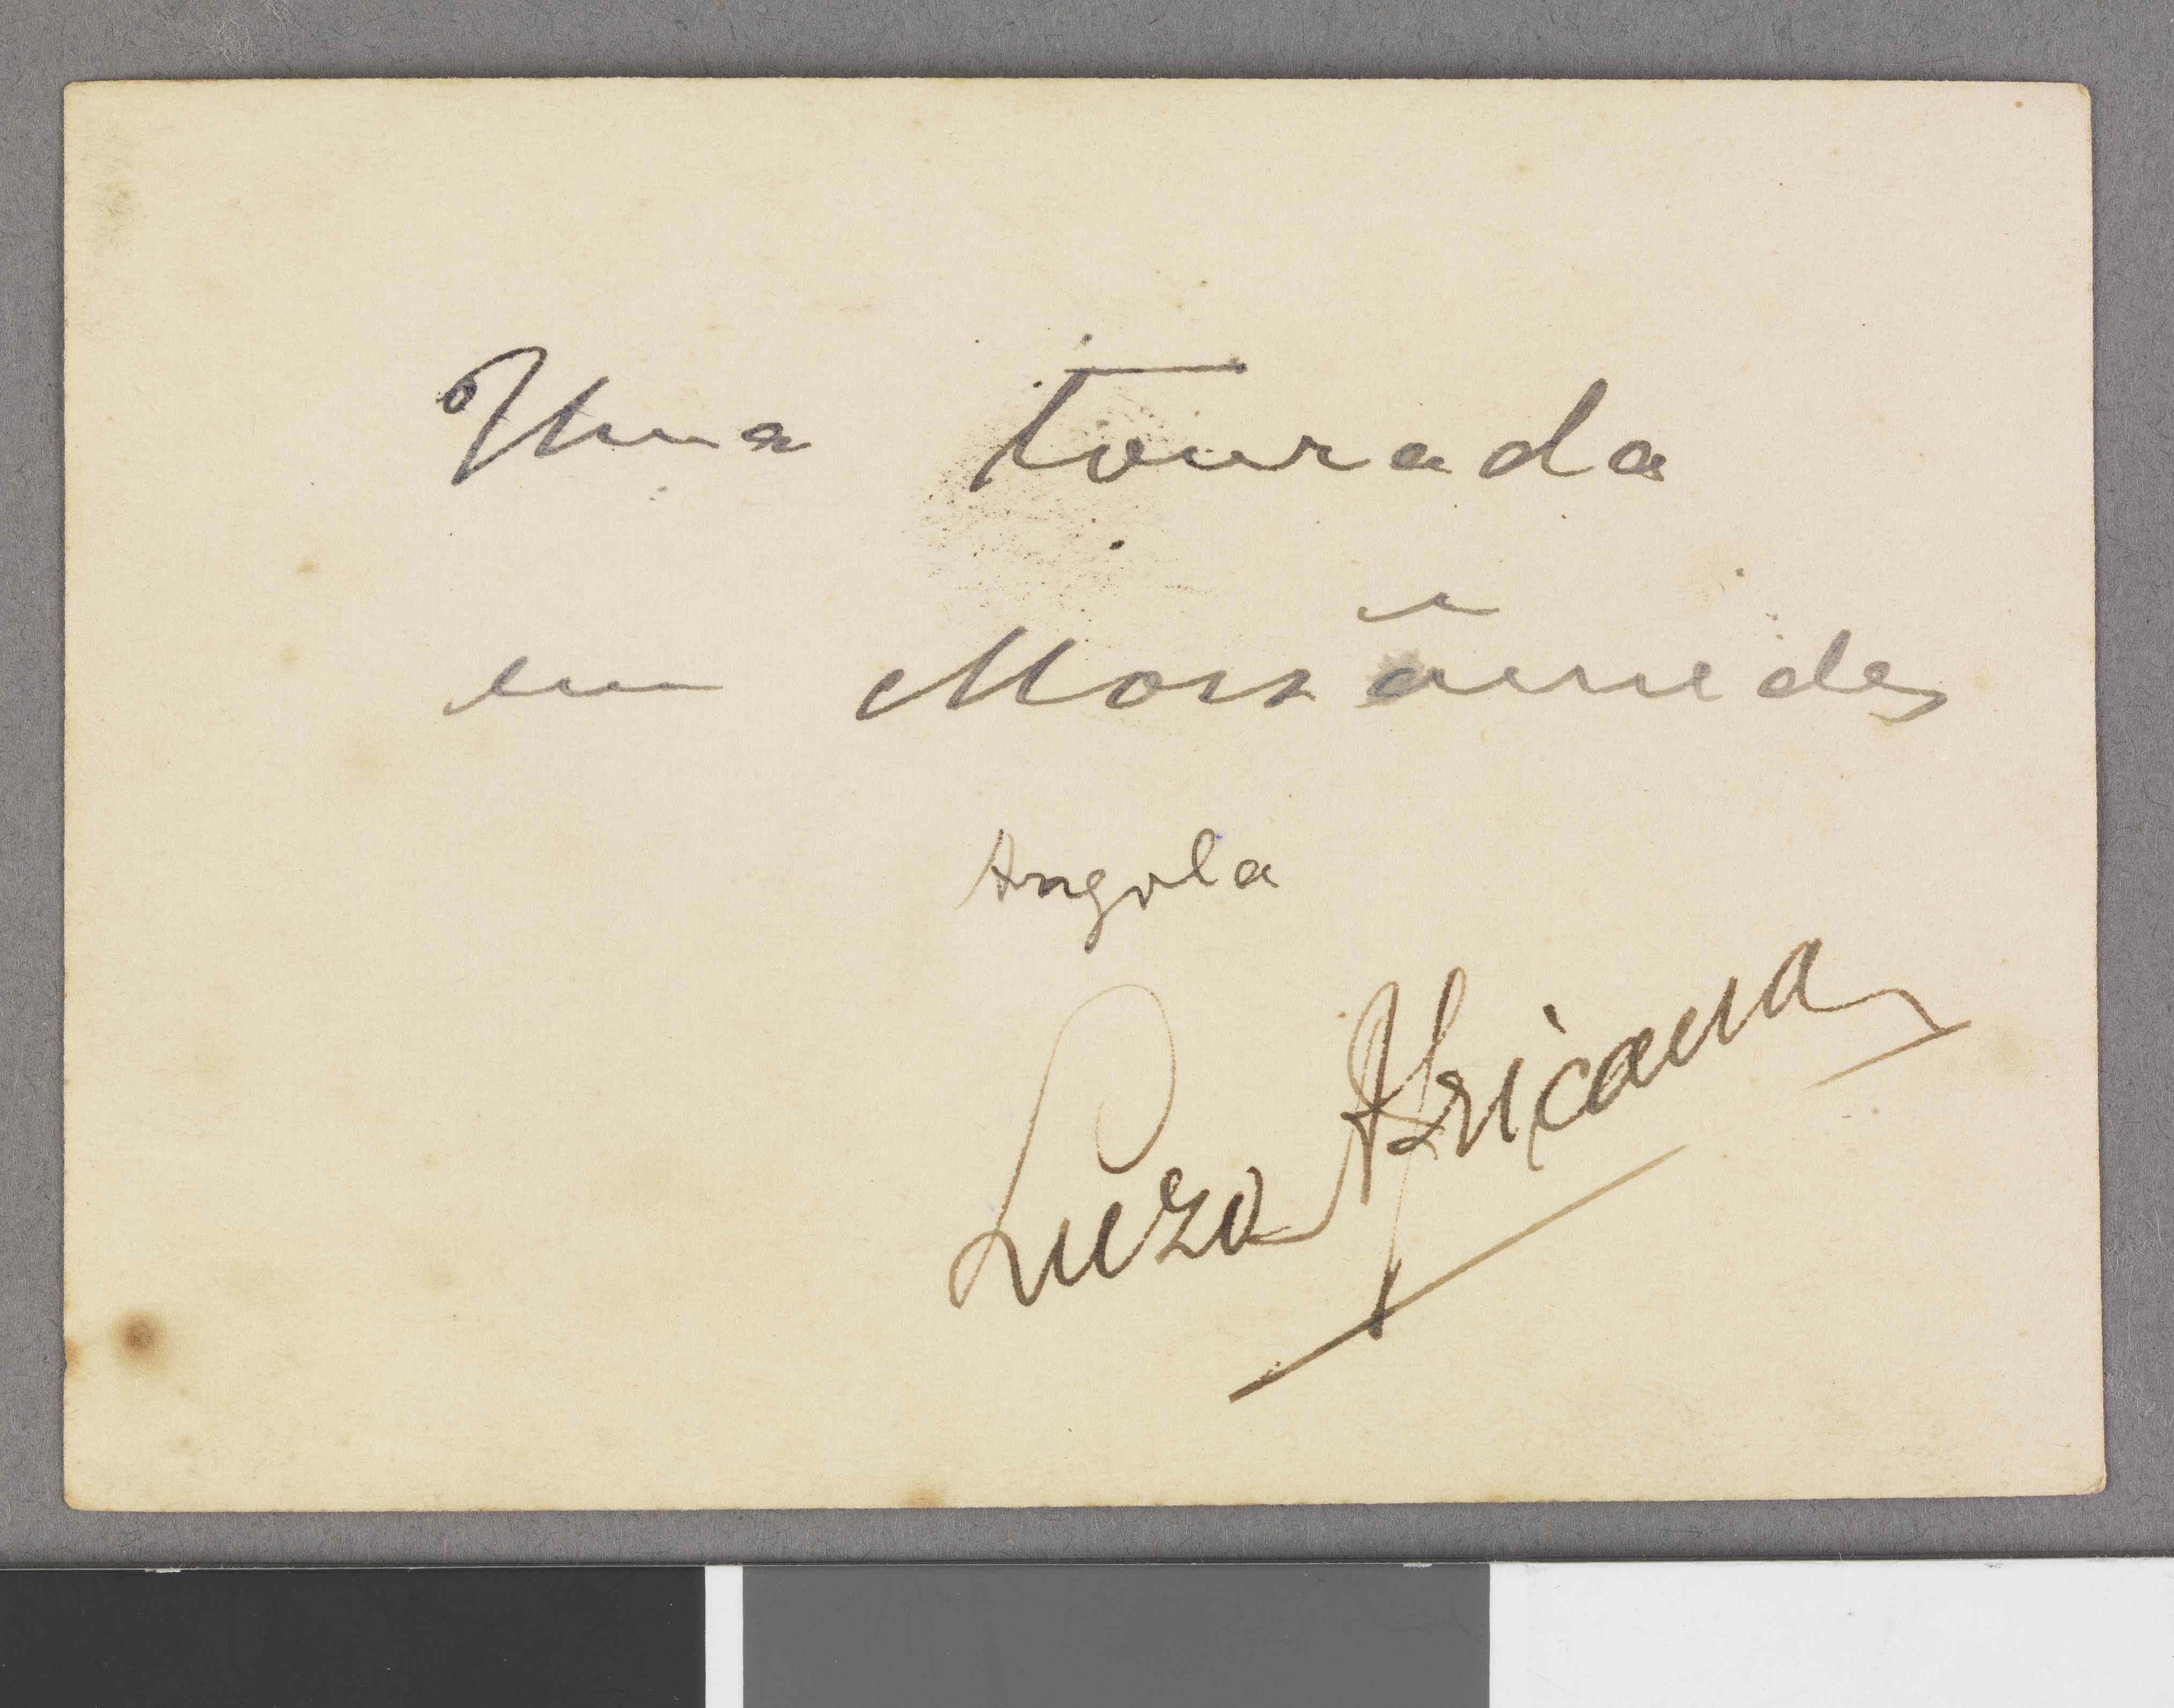 Uma tourada
em Mossâmedes
Angola
Luzo Africana